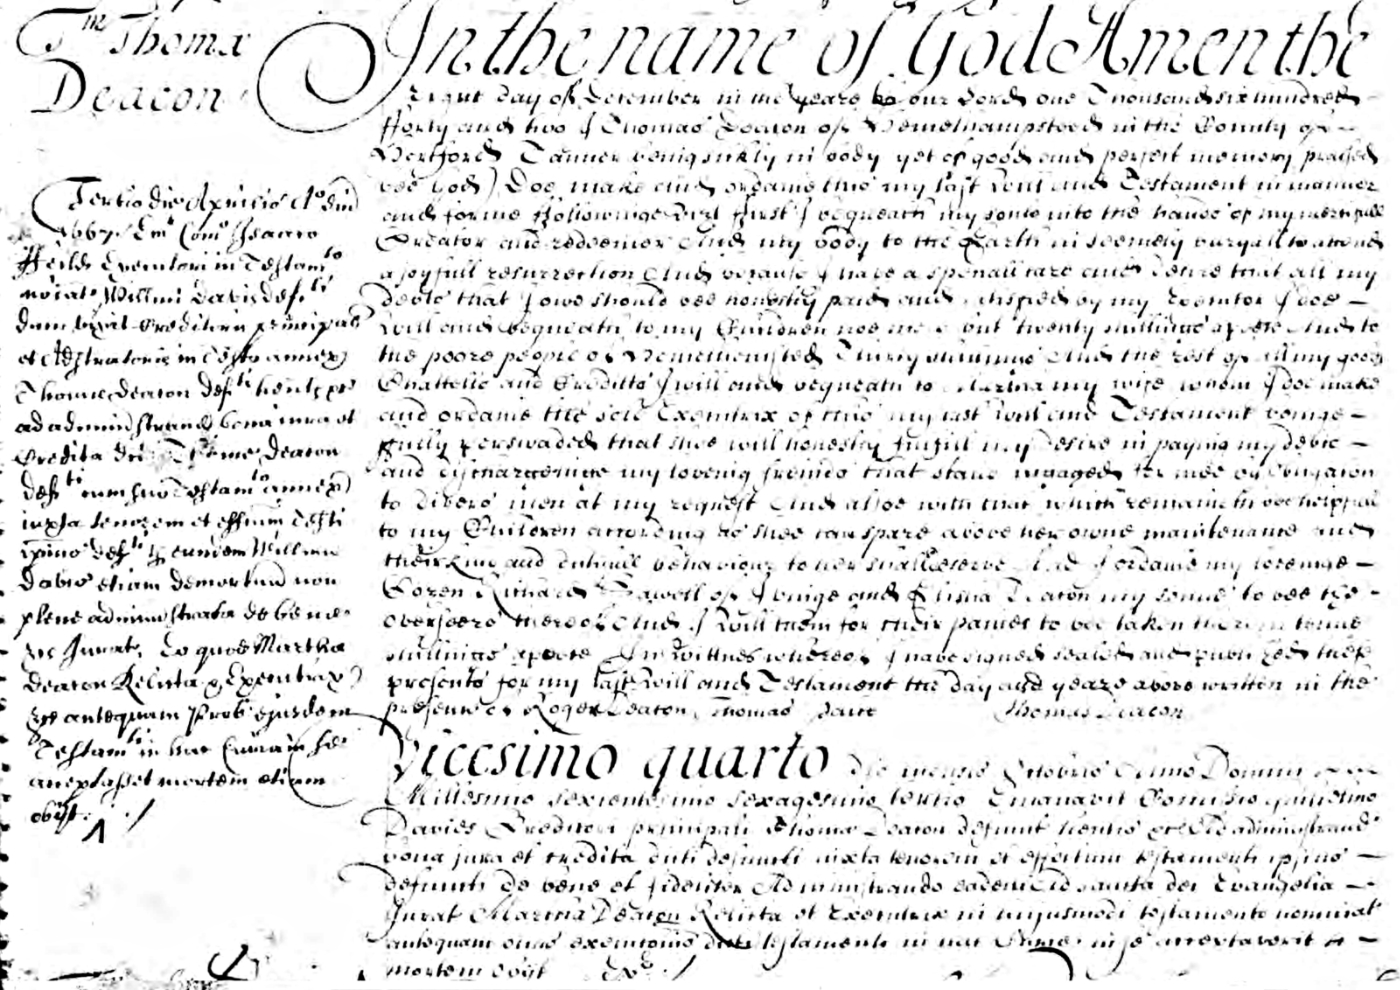 Tm Thomæ
Deacon
Tertio die Aprilis Ao Dni
1667 Emt Como Isaaco
Feild Executori in Testamto
nōiat Willmi Davis defti
dum vixit Creditoris principal
et Adstratoris in Testo annex
Thome Deacon defti hentis &c
ad administrand bona iura et
Credita dci Thome Deacon
defti cum suo Testamto annex
iuxta tenorem et effcum Testi
ipsius defti per eundem Willm
Davis etiam demortuu non
plene administrata de bene
&c Jurat, Eo quod Martha
Deacon Relicta & Executrix
&c antequam Prob ejusdem
Testamti in hac Curia in se
acceptasset mortem etiam
obijt
In the name of God Amen the
Eight day of December in the yeare of our Lord one Thousand six hundred
fforty and two I Thomas Deacon of Hemelhampsteed in the County of
Hertford Tanner being sickly in body yet of good and perfect memory praised
bee God) Doe make and ordaine this my last Will and Testament in manner
and forme ffollowinge vizt ffirst I bequeath my soule into the hands of my mercifull
Creator and redeemer And my body to the Earth in seemely buryall to attend
a joyfull resurrection And because I have a speciall care and desire that all my
debts that I owe should bee honestly paid and satisfied by my Executor I doe
Will and bequeath to my Children noe more but twenty shillings apeece And to
the poore people of Hemelhemsted Thirty shillings And the rest of all my goods
Chattells and Creditts I will and bequeath to Martha my wife whom I doe make
and ordaine the sole Executrix of this my last Will and Testament beinge
ffully perswaded that shee will honestly fulfill my desire in paying my debts
and dischargeinge my loveing freinds that stand ingaged for mee by Obligation
to divers men at my request And alsoe with that which remaineth bee helpfull
to my Children according as shee can spare above her owne maintenance and
their kind and dutifull behaviour to her shall deserve And I ordaine my loveinge
Cozen Richard Sawell of Ivinge and Elisha Deacon my sonne to bee the
Overseers thereof And I Will them for their paines to bee taken therein tenne
shillings apeece In Wittnes whereof I have signed sealed and published these
presents for my last Will and Testament the day and yeare above written in the
presence of Roger Deacon, Thomas Thomas Deacon
Vicesimo quarto die mensis Octobris Anno Domini
Millesimo sexcentesimo sexagesimo tertio Emanavit Comissio Gulielmo
Davies Creditori principali Thomæ Deacon defunct hentis &c Ad administrand
bona jura et credita dicti defuncti iuxta tenorem et effectum testamenti ipsius
defuncti De bene et fideliter Administrando eadem Ad sancta dei Evangelia
Jurat Martha Deacon Relicta et Executrix in hujusmodi testamento nominat
antequam onus executionis dicti testamenti in hac Curia in se acceptaverit
mortem obijt Exr